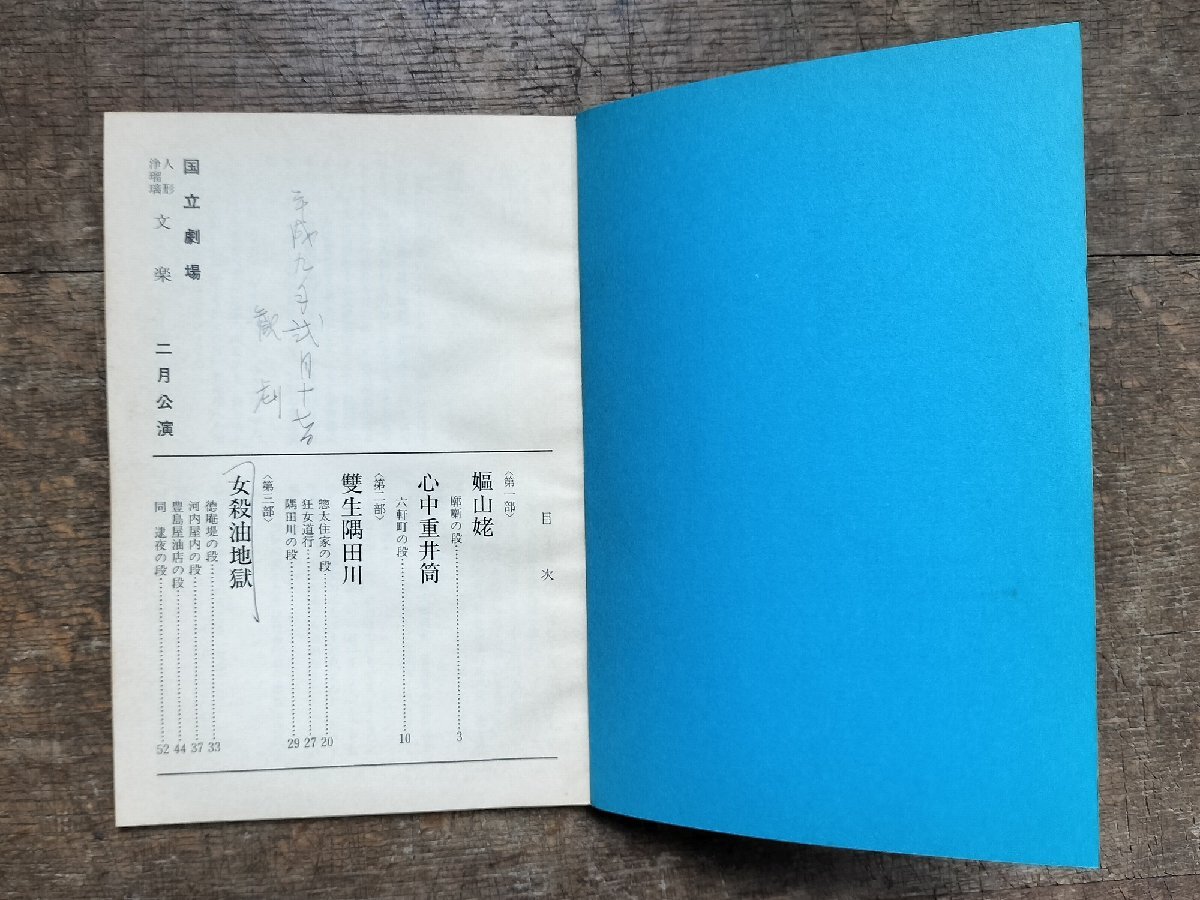 平成九年弐月十七日
観劇
国立劇場
人形浄瑠璃 文楽 二月公演
目次
〈第一部〉
嫗山姥
廓噺の段……3
心中重井筒
六軒町の段……10
〈第二部〉
雙生隅田川
惣太住家の段……20
狂女道行……27
隅田川の段……29
〈第三部〉
女殺油地獄
徳庵堤の段……33
河内屋内の段……37
豊島屋油店の段……44
同 逮夜の段……52